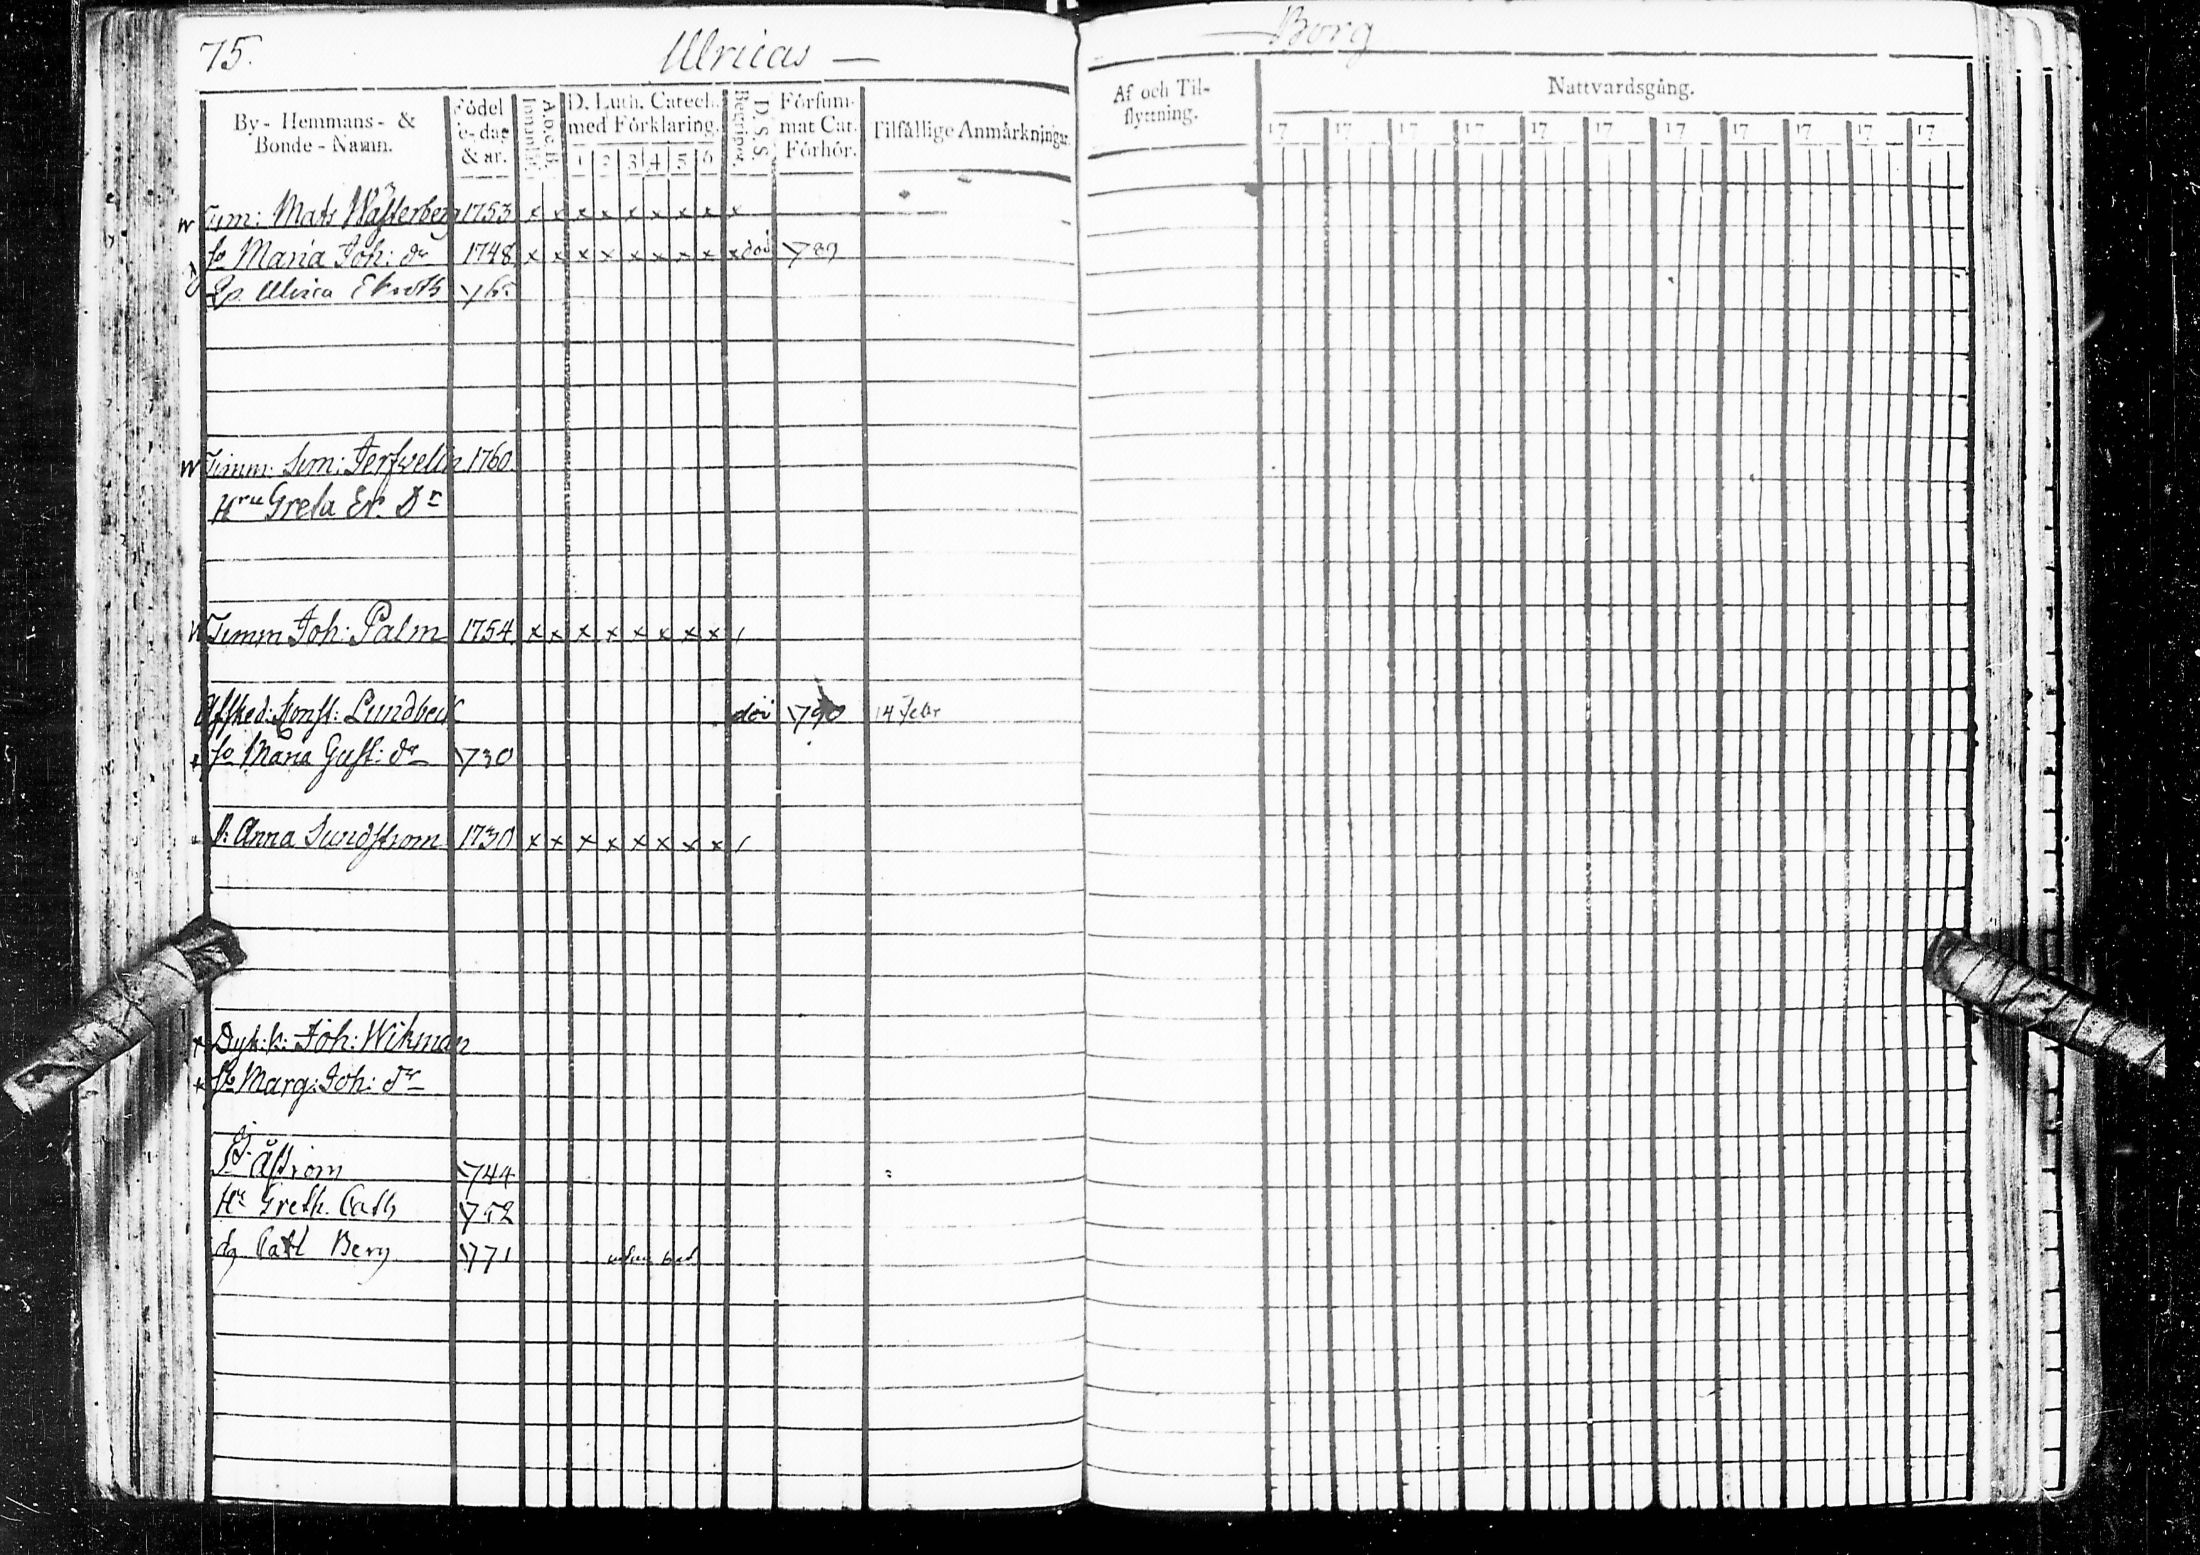 75. Ulricas — — Borg
By- Hemmans- & Bonde-Namn. Födelse-dag & år. A.b.c.B. Innanläs. D. Luth. Catech. med Förklaring. 1 2 3 4 5 6 D. S. S. Begriper. Försummat Cat. Förhör. Tilfällige Anmärkningar. Af och Tilflyttning. Nattvardsgång.
17 17 17 17 17 17 17 17 17 17 17
Tim: Mats Wässterberg 1753 x x x x x x x x x
Maria Joh: dr 1748 x x x x x x x x x död 1789
Ulrica
Timm: Sim: Jerfvelin 1760
Hru Greta Er. Dr
Timm Joh: Palm 1754 x x x x x x x x /
Afsked: Konst: Lundbeck död 1790 14 Febr
Maria Gust: dr 1730
Anna Sundstrom 1730 x x x x x x x x /
+ Dyk: k: Joh: Wikman
+ Marg: Joh: dr
Åström 1744
Hr Greth. Cath 1752
Berg 1771